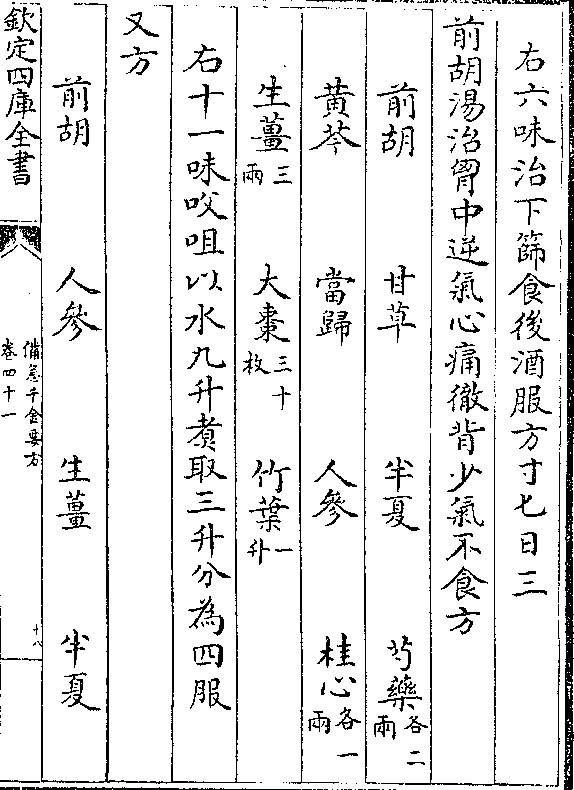 右六味治下篩食後酒服方寸匕日三
前胡湯治胷中逆氣心痛徹背少氣不食方
前胡 甘草 半夏 芍藥各二兩
黄芩 當歸 人參 桂心各一兩
生薑三兩 大棗三十枚 竹葉一升
右十一味㕮咀以水九升煑取三升分為四服
又方
前胡 人參 生薑 半夏
欽定四庫全書
備急千金要方
卷四十一
十八